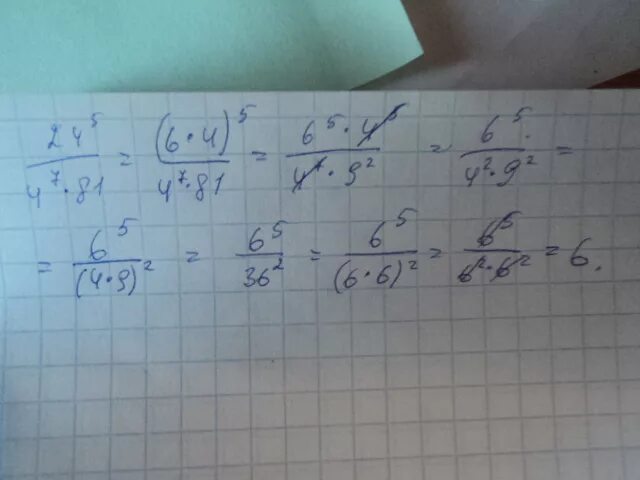 24⁵/(4⁷·81) = (6·4)⁵/(4⁷·81) = 6⁵·4⁵/(4⁷·9²) = 6⁵/(4²·9²) =
= 6⁵/(4·9)² = 6⁵/36² = 6⁵/(6·6)² = 6⁵/(6²·6²) = 6.